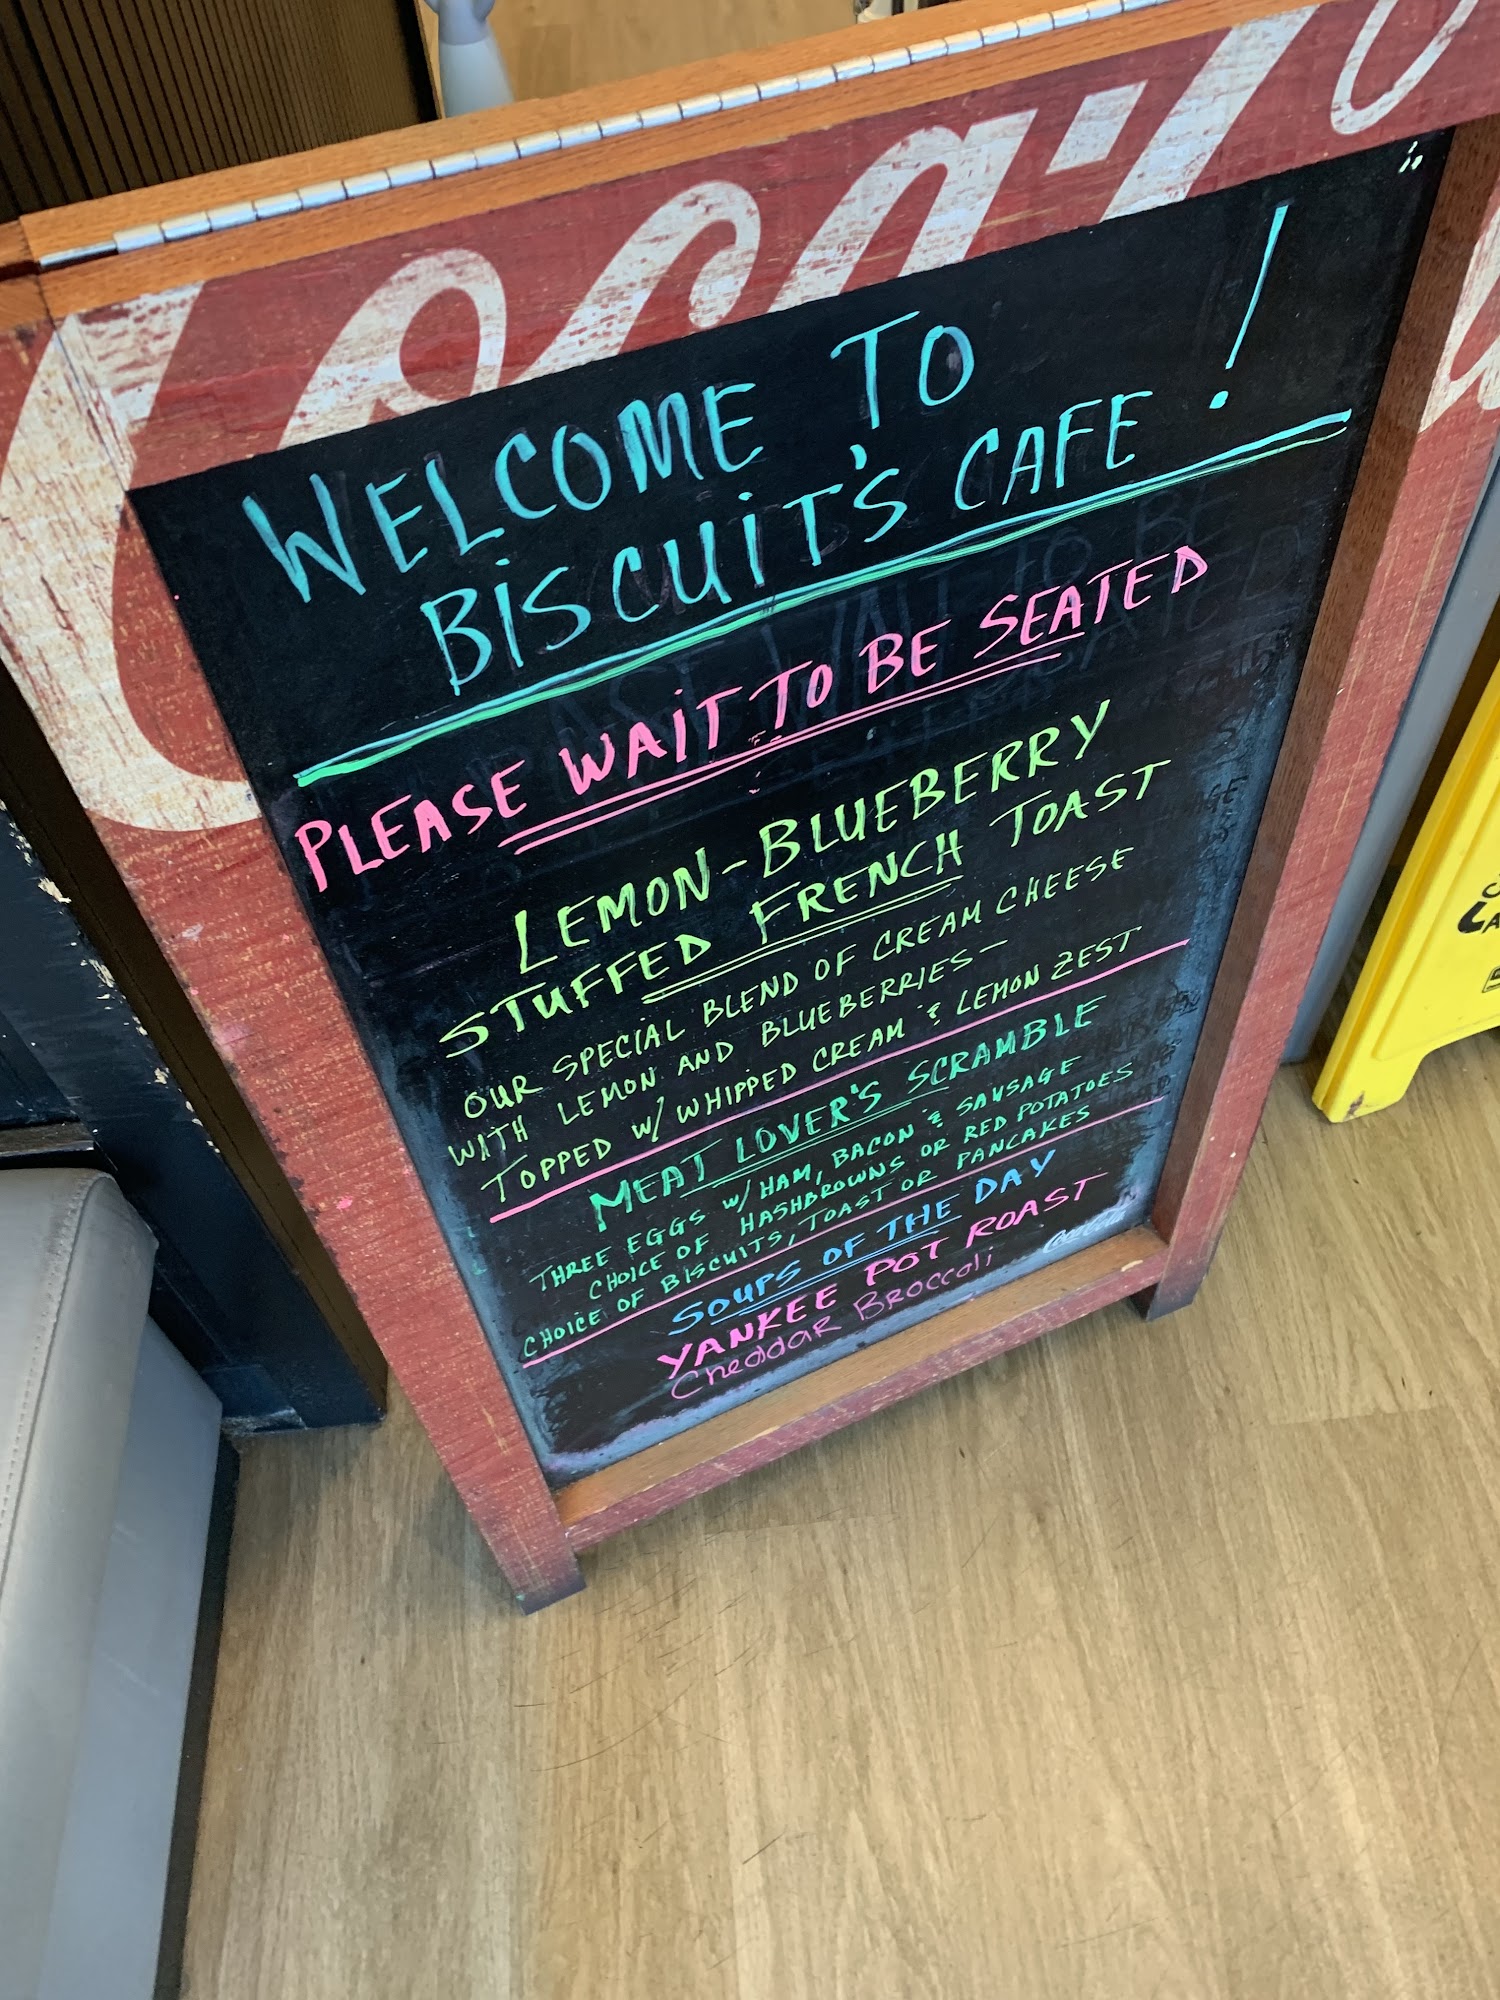 Coca-Co
WELCOME TO
BISCUIT'S CAFE!
PLEASE WAIT TO BE SEATED
LEMON-BLUEBERRY
STUFFED FRENCH TOAST
OUR SPECIAL BLEND OF CREAM CHEESE
WITH LEMON AND BLUEBERRIES—
TOPPED W/ WHIPPED CREAM & LEMON ZEST
MEAT LOVER'S SCRAMBLE
THREE EGGS W/ HAM, BACON & SAUSAGE
CHOICE OF HASHBROWNS OR RED POTATOES
CHOICE OF BISCUITS, TOAST OR PANCAKES
SOUPS OF THE DAY
YANKEE POT ROAST
Cheddar Broccoli